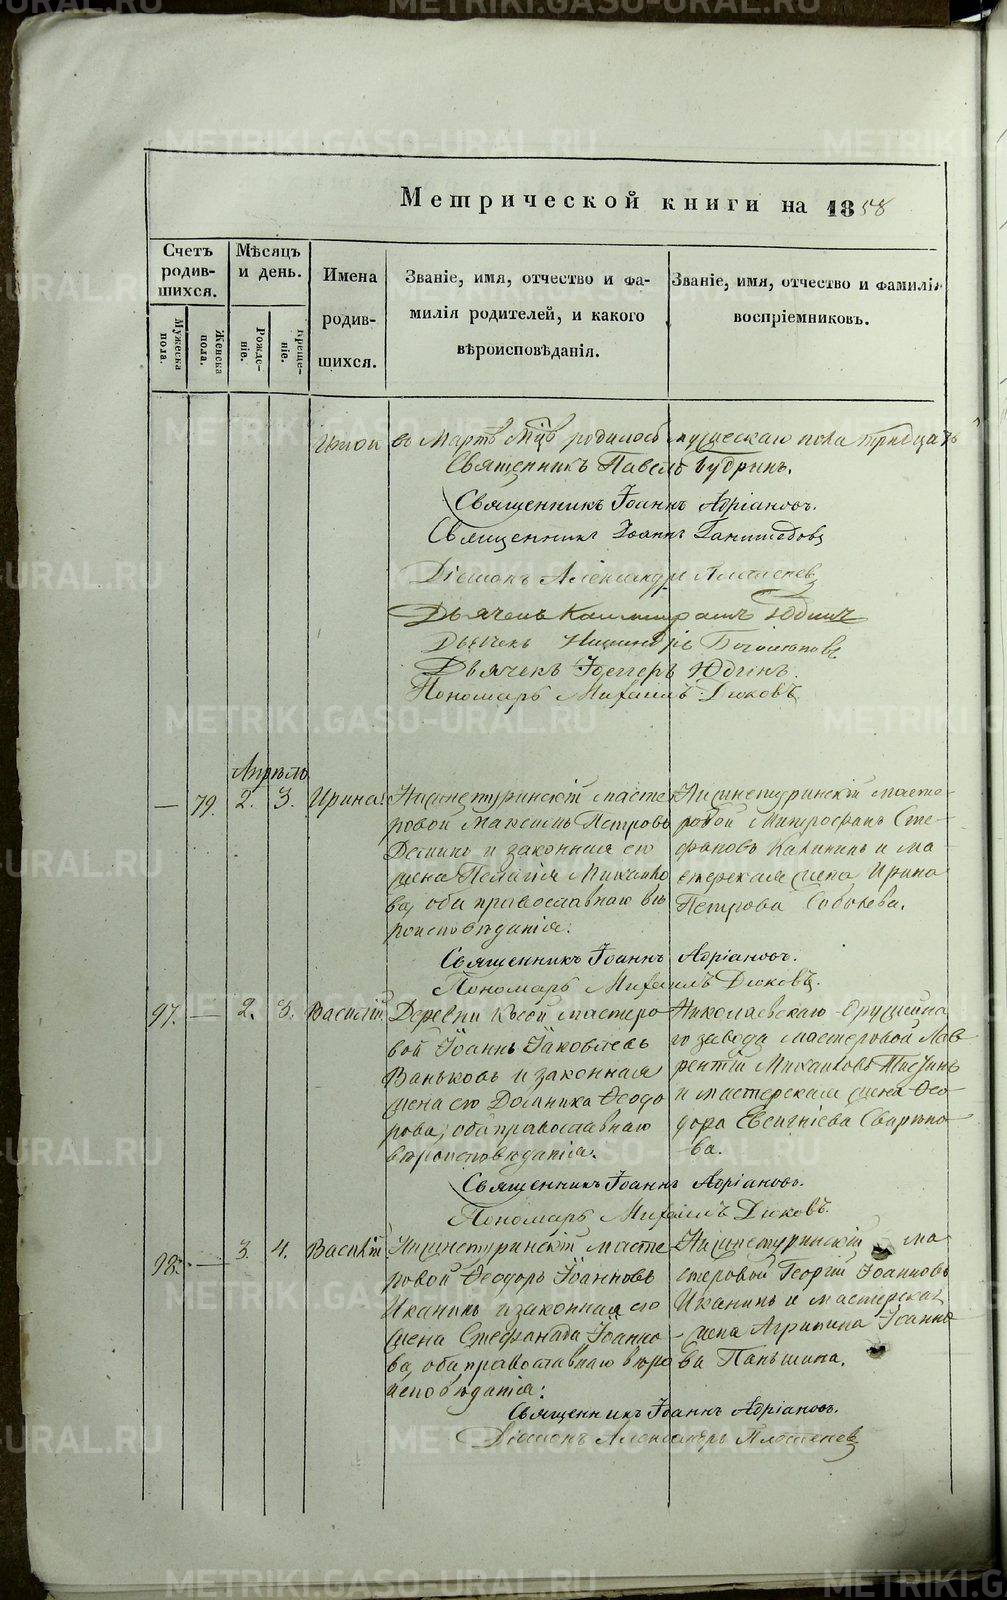 Метрической книги на 1858
Счетъ родив-шихся.
Мужеска пола.
Женска пола.
Мѣсяцъ и день.
Рожде-ніе.
Креще-ніе.
Имена
родив-
шихся.
Званіе, имя, отчество и фа-
милія родителей, и какого
вѣроисповѣданія.
Званіе, имя, отчество и фамилія
воспріемниковъ.
Итого въ Мартѣ мцѣ родилось мужескаго пола тридцать
Священникъ Павелъ Кудринъ.
Священникъ Іоаннъ Адріановъ.
Священникъ Іоаннъ
Діаконъ Александръ Плотеневъ
Дьячекъ Юдинъ
Дьячекъ
Дьячекъ Юдинъ.
Пономарь Михаилъ Дюковъ
Апрѣль
— 79. 2. 3. Ирина. Нижнетуринскій масте-
ровой Максимъ Петровъ
Деминъ и законная его
жена Пелагія Михайло
ва, оба православнаго вѣ
роисповѣданія.
Нижнетуринскій масте-
ровой Митрофанъ Сте-
фановъ Калининъ и ма-
стерская жена Ирина
Петрова Соболева.
Священникъ Іоаннъ Адріановъ.
Пономарь Михаилъ Дюковъ.
97. — 2. 3. Василій Деревни Косой мастеро
вой Іоаннъ Іаковлевъ
Ваньковъ и законная
жена его Домника Ѳеодо
рова, оба православнаго
вѣроисповѣданія.
Николаевскаго Оружейна
го завода мастеровой Лав
рентій Михайловъ
и мастерская жена Ѳео-
дора Евсигніева
ва.
Священникъ Іоаннъ Адріановъ.
Пономарь Михаилъ Дюковъ.
98. — 3. 4. Василій Нижнетуринскій масте
ровой Ѳеодоръ Іоанновъ
Иканинъ и законная его
жена Стефанида Іоанно
ва, оба православнаго вѣро
исповѣданія:
Нижнетуринскій ма
стеровой Георгій Іоанновъ
Иканинъ и мастерская
жена Агрипина Іоанно
ва Паньшина.
Священникъ Іоаннъ Адріановъ.
Діаконъ Александръ Плотеневъ
METRIKI.GASO-URAL.RU